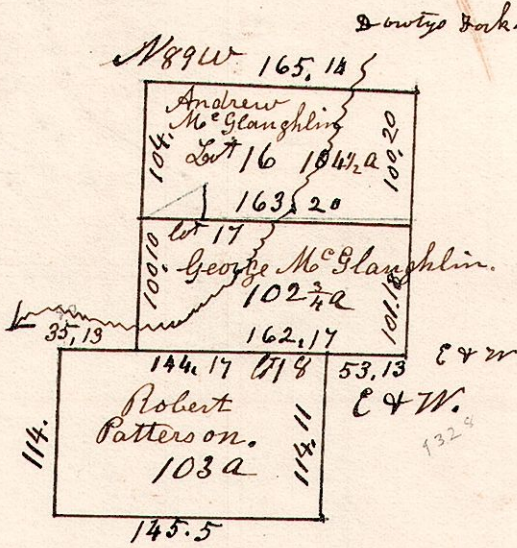 Dowtys Fork.
N89W 165,14
Andrew
McGlaughlin
Lot 16 104½a
104.
100,20
163,20
lot 17
100,10
George McGlaughlin.
102¾a
101.18
35,13
162,17
144,17 lot 18 53,13 E & W
E & W.
Robert
Patterson.
103a
114.
114.11
145.5